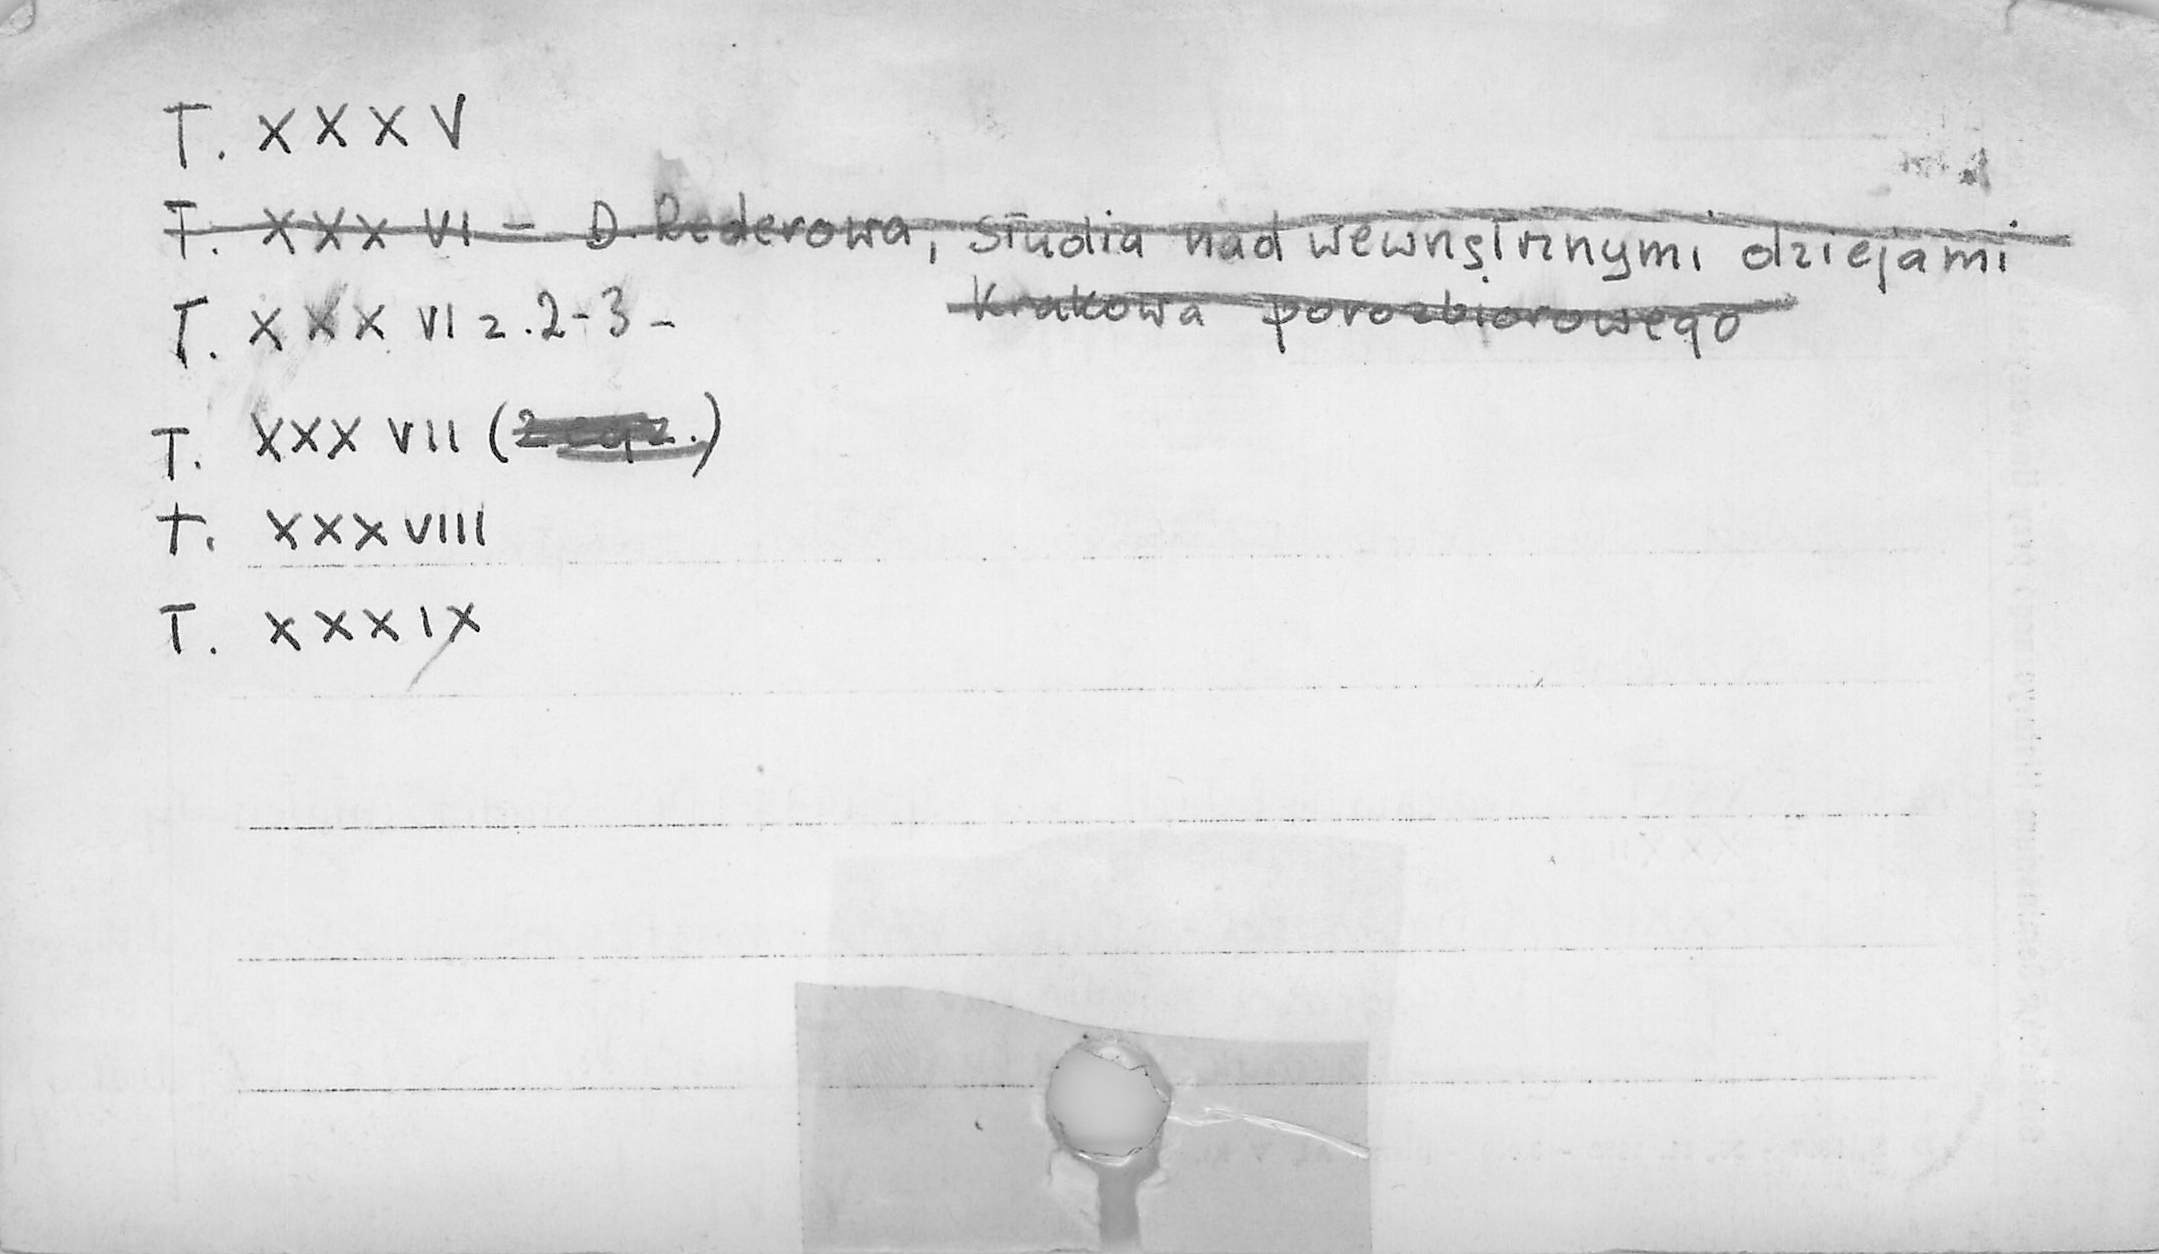 T. XXXV
T. XXXVI - D. Rederowa, Studia nad wewnętrznymi dziejami
Krakowa porozbiorowego
T. XXXVI z. 2-3 -
T. XXXVII (2 egz.)
T. XXXVIII
T. XXXIX